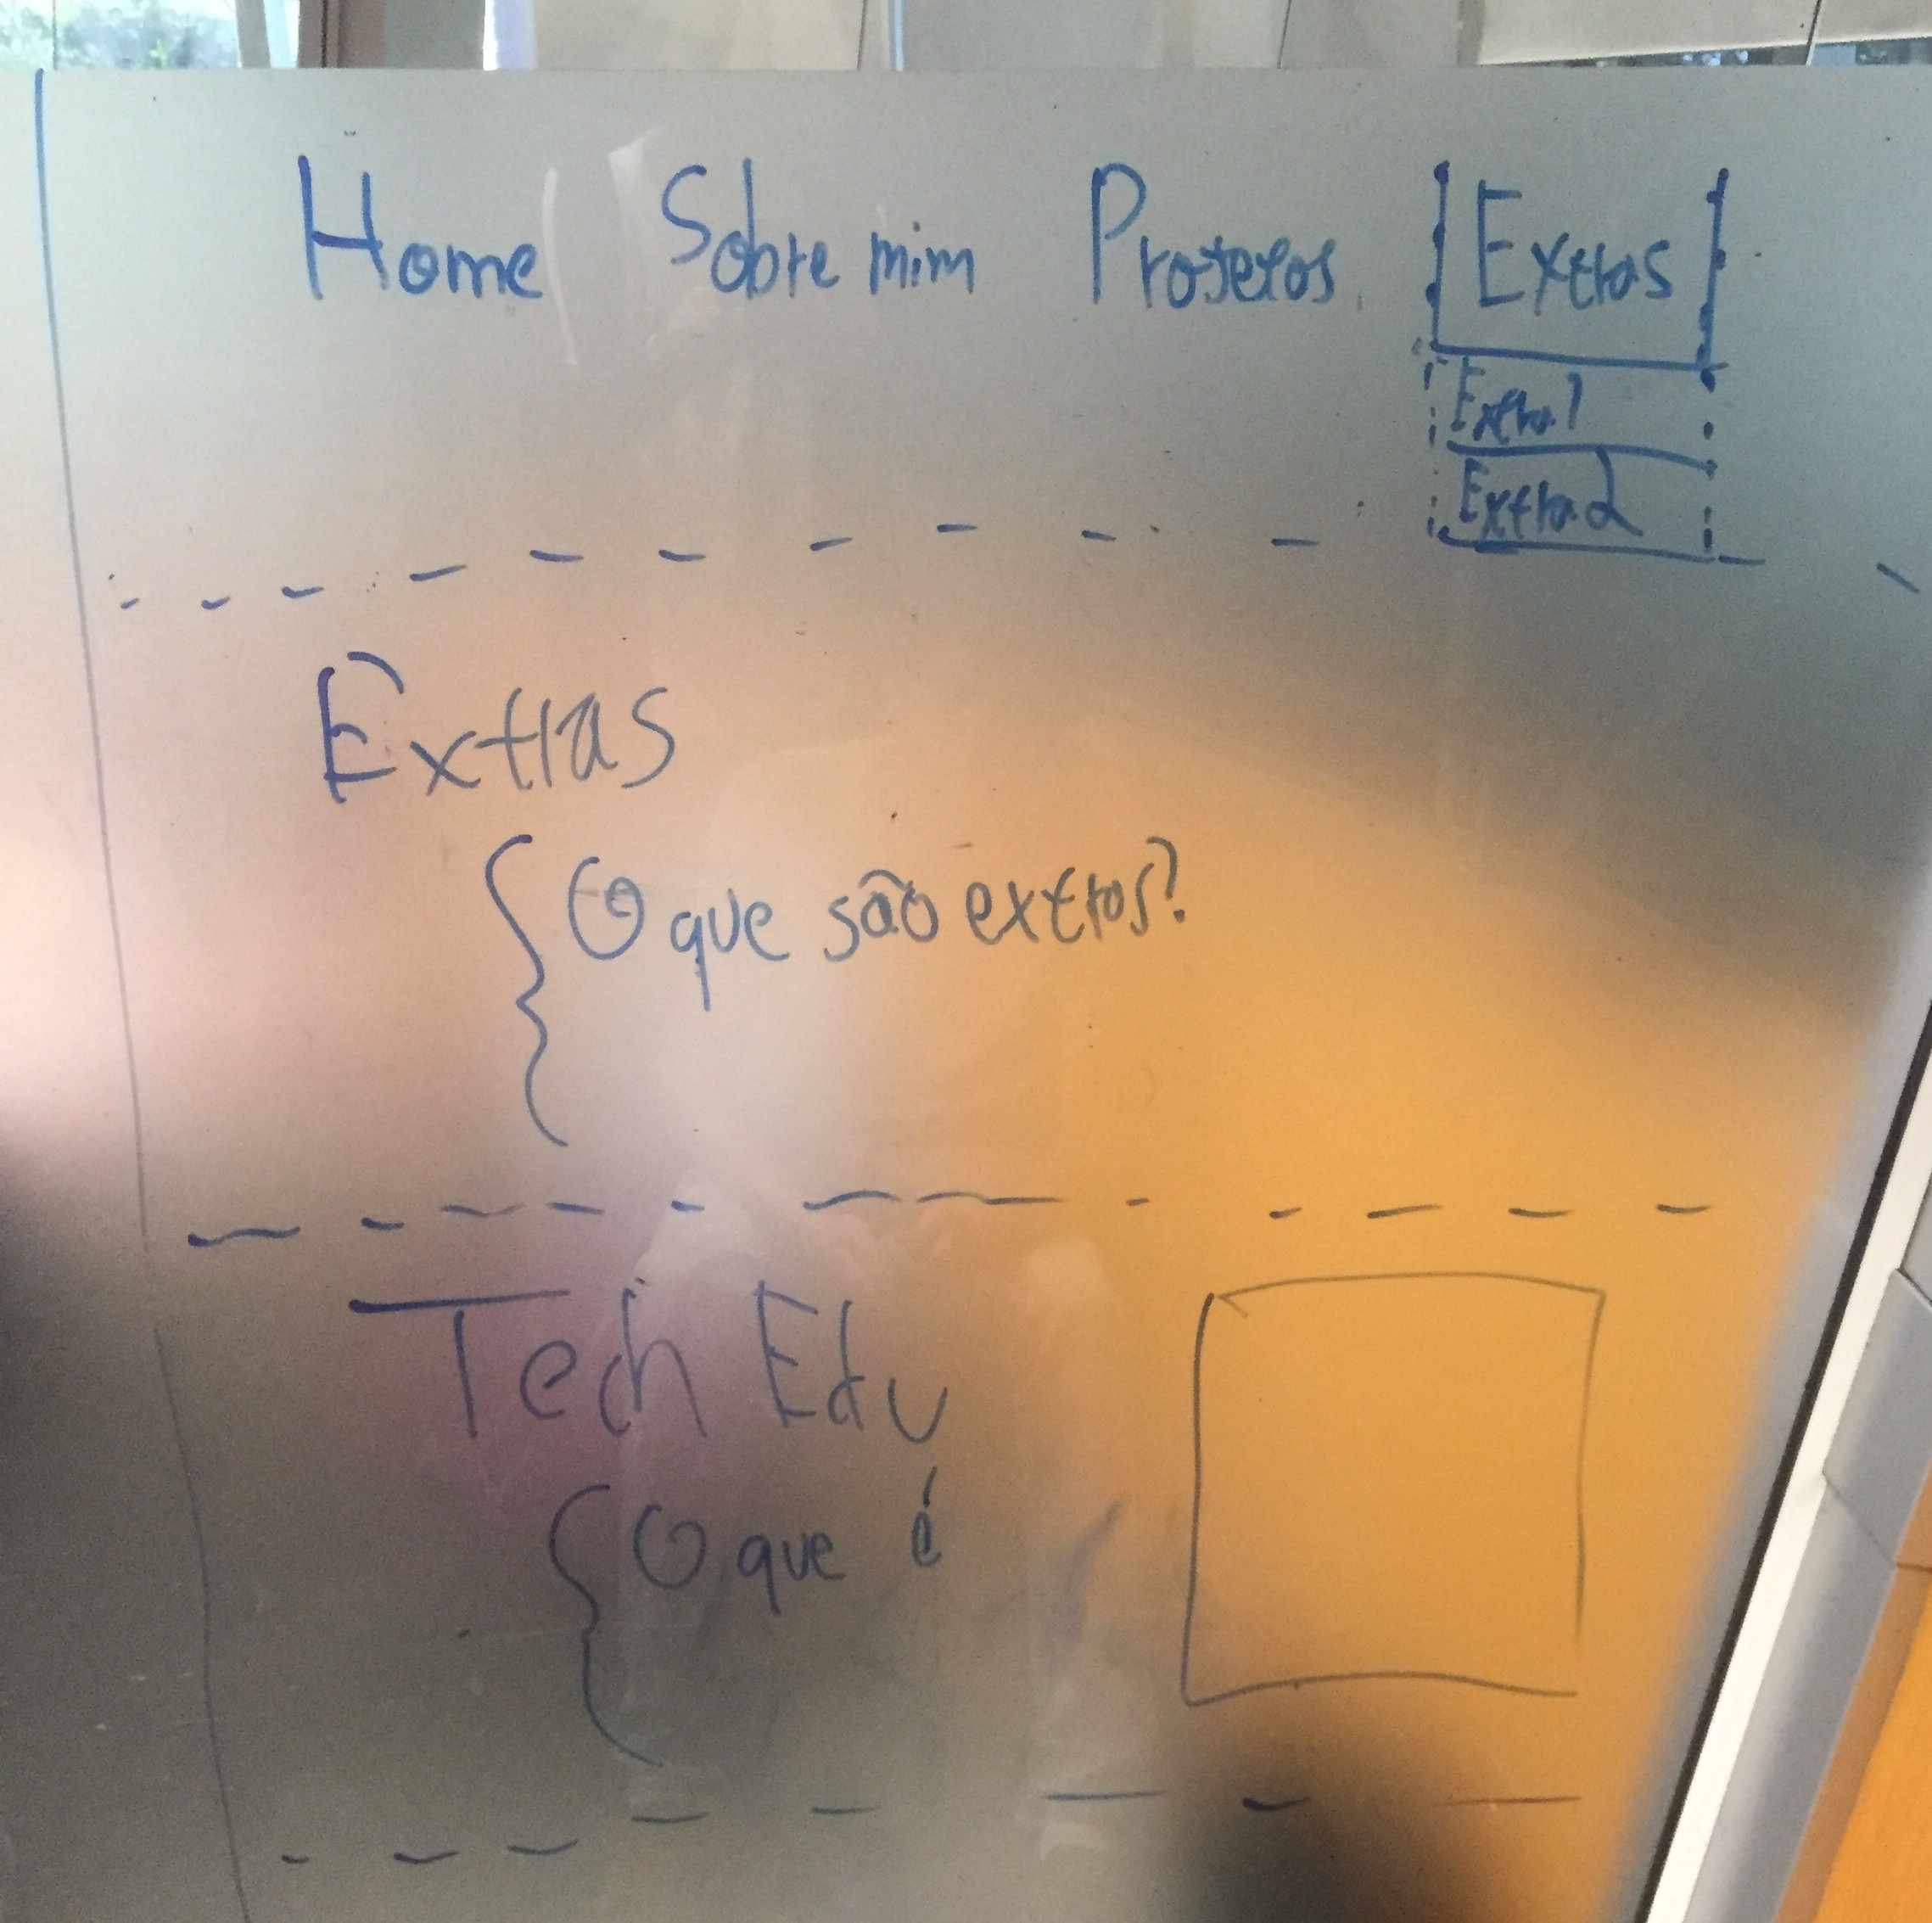 Home Sobre mim Projetos Extras
Extra 1
Extra 2
Extras
O que são extras?
Tech Edu
O que é